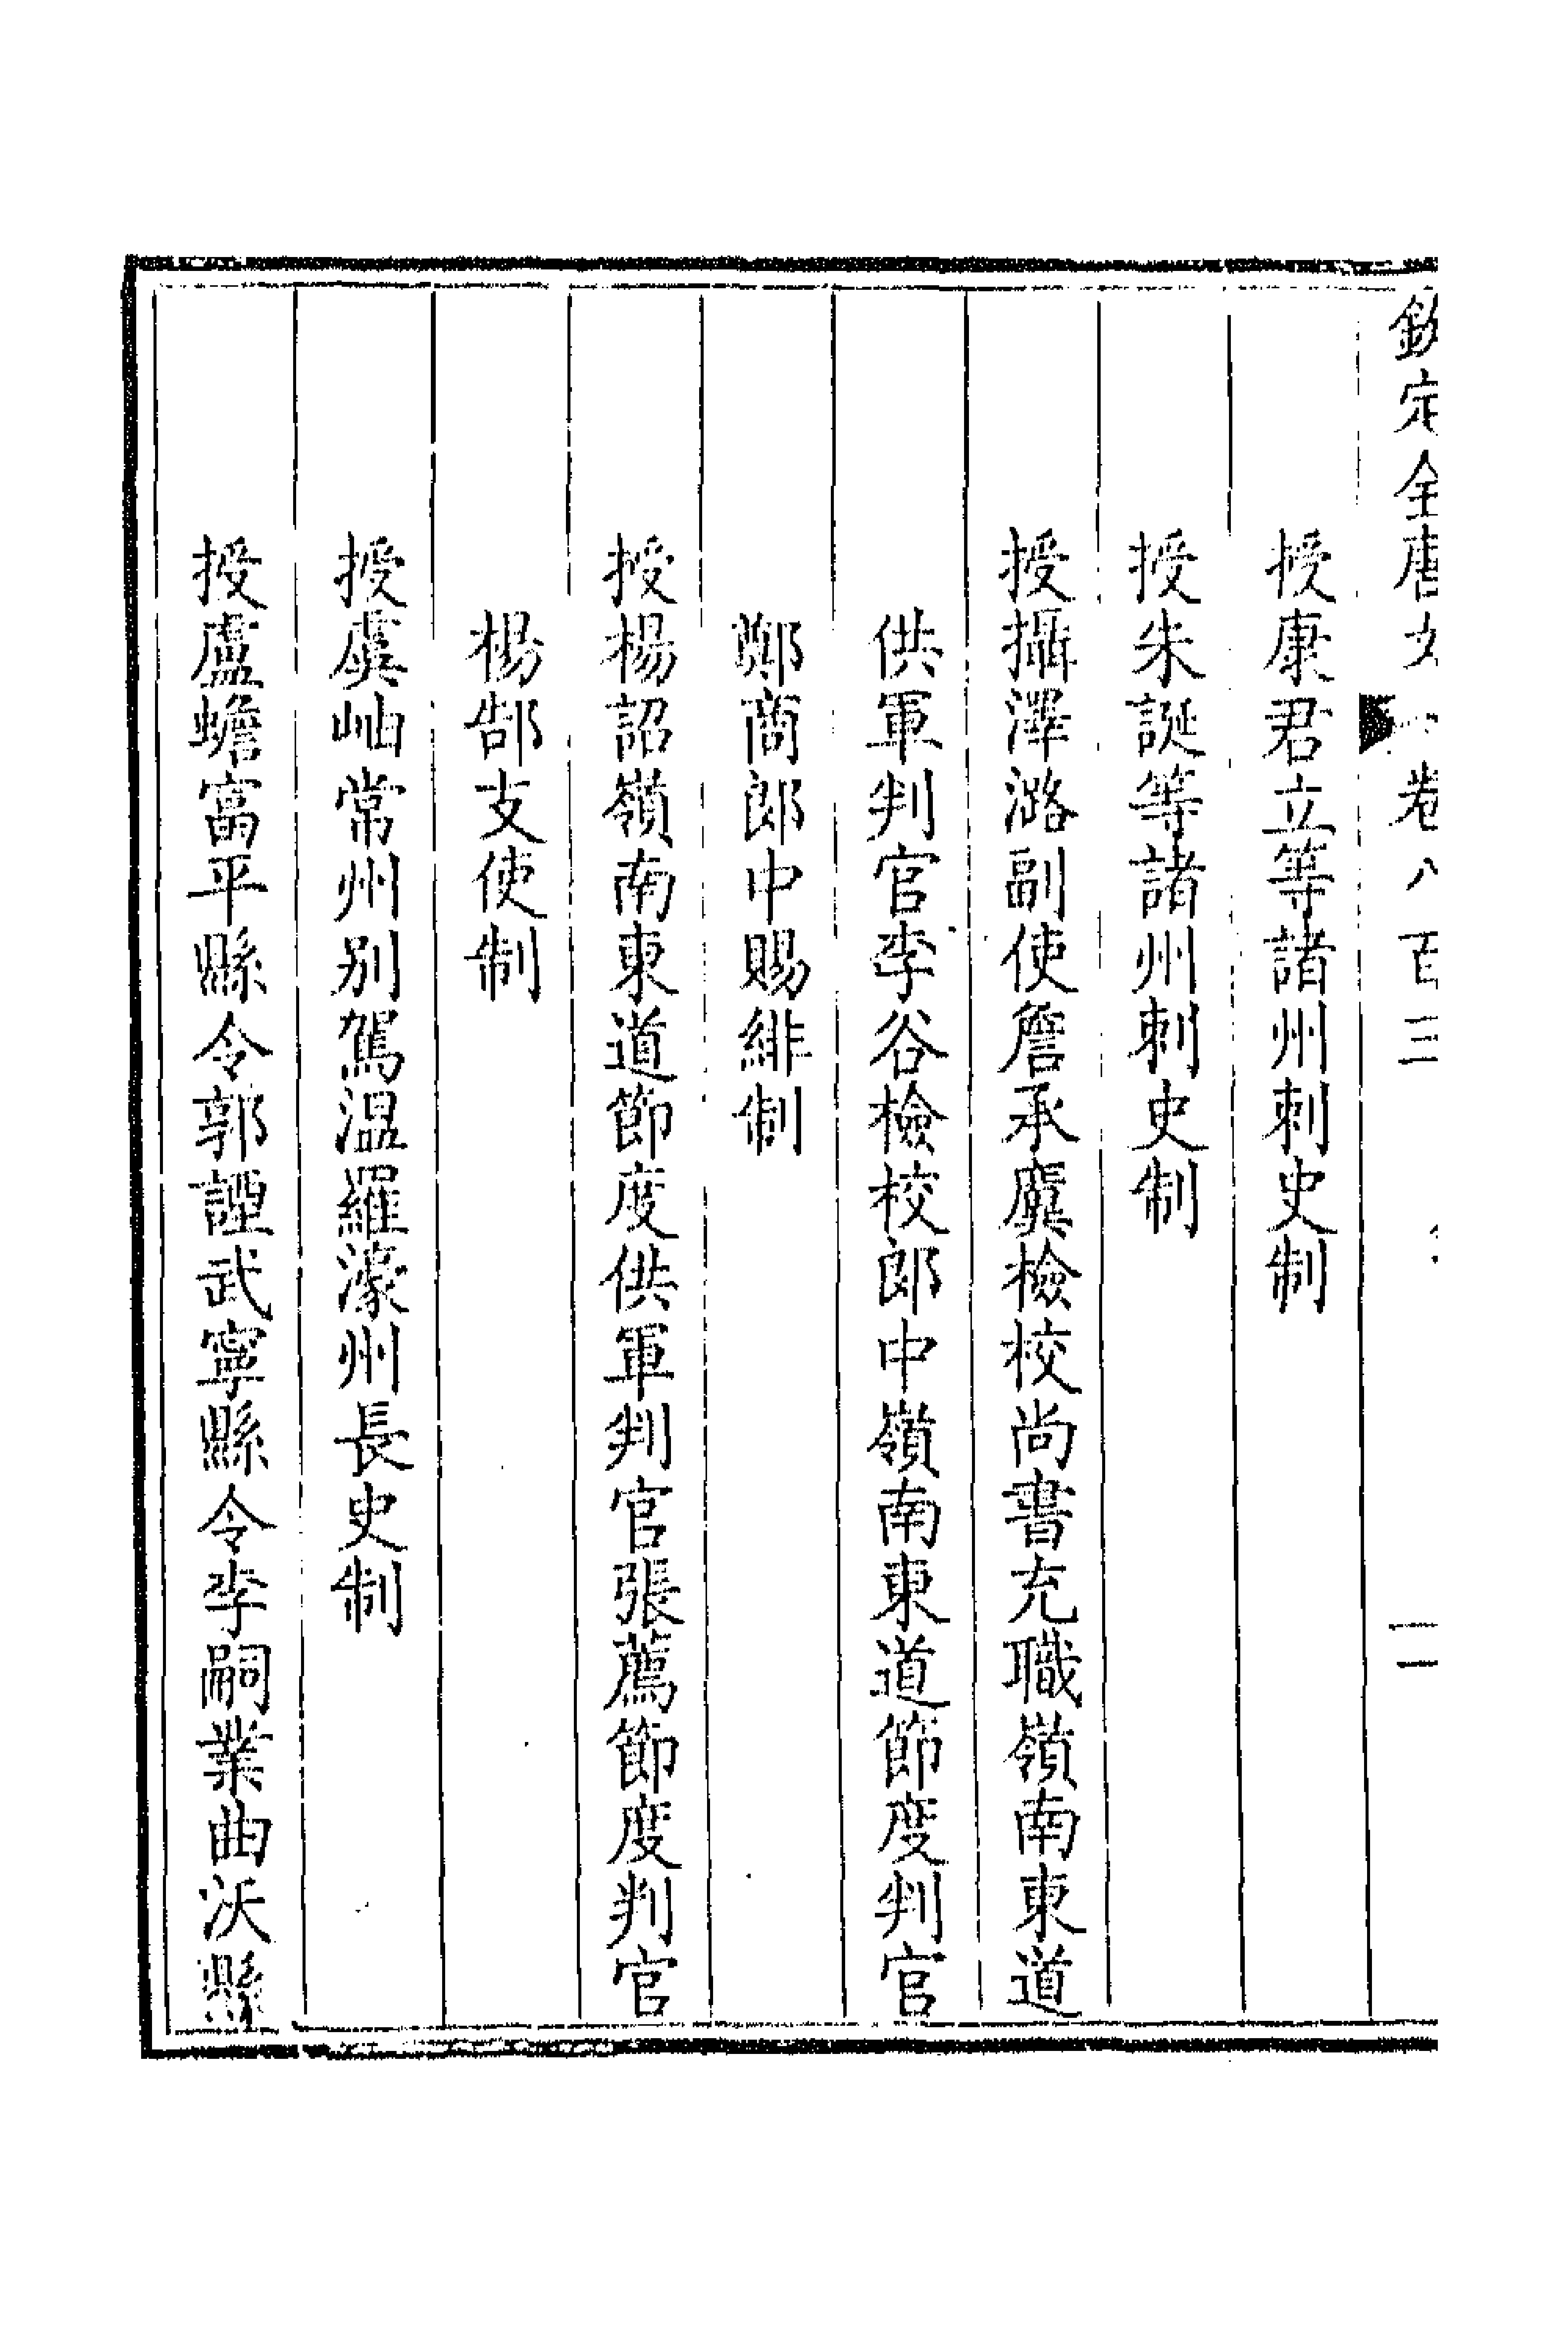 欽定全唐文 卷八百三 二
授康君立等諸州刺史制
授朱誕等諸州刺史制
授攝澤潞副使詹承廙檢校尚書充職嶺南東道
供軍判官李谷檢校郎中嶺南東道節度判官
鄭商郎中賜緋制
授楊詔嶺南東道節度供軍判官張薦節度判官
楊郜支使制
授虞岫常州別駕溫羅濠州長史制
授盧蟾富平縣令郭諲武寧縣令李嗣業曲沃縣